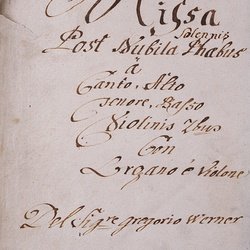 Missa
Solennis
Post Nubila Phæbus
à
Canto, Alto
Tenore, Basso
Violinis 2bus
Con
Organo è Violone
Del Sigre gregorio Werner